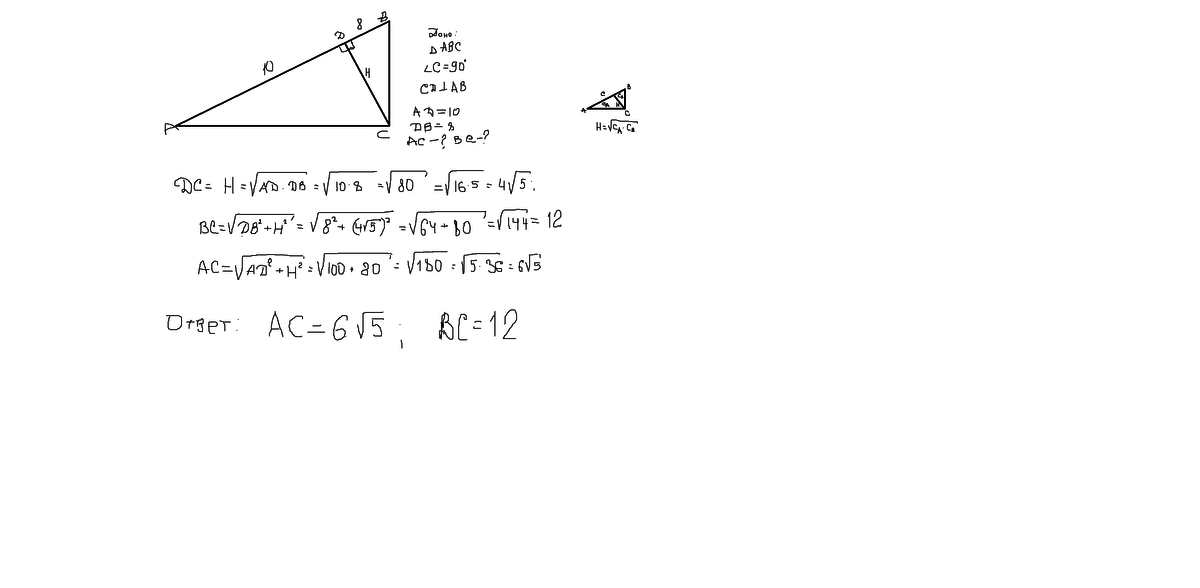 8
B
D
10
H
A
C
Дано:
△ ABC
∠C=90°
CD⊥AB
AD=10
DB=8
AC-? BC-?
B
C
A
C
H=√(C_A·C_B)
DC= H=√(AD·DB)=√(10·8)=√80=√(16·5)=4√5;
BC=√(DB²+H²)=√(8²+(4√5)²)=√(64+80)=√144=12
AC=√(AD²+H²)=√(100+80)=√180=√(5·36)=6√5
Ответ: AC=6√5; BC=12